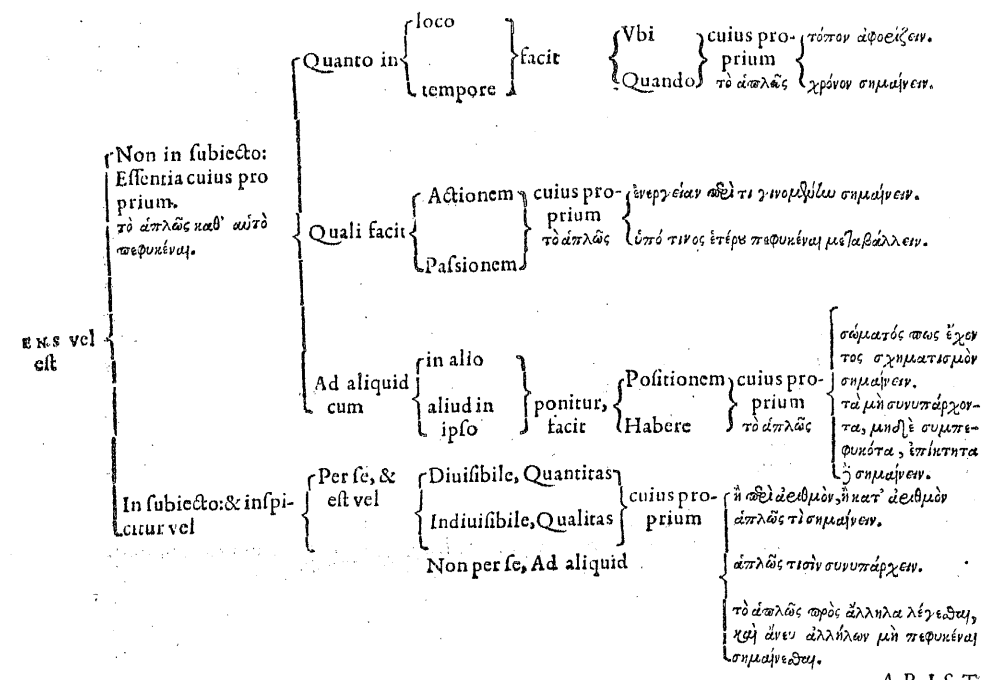 loco
Quanto in
tempore
facit
Vbi
Quando
cuius pro-
prium
τὸ ἁπλῶς
τόπον ἀφορίζειν.
χρόνον σημαίνειν.
Non in ſubiecto:
Eſſentia cuius pro
prium.
τὸ ἁπλῶς καθ' αὑτὸ
πεφυκέναι.
Quali facit
Actionem
Paſsionem
cuius pro-
prium
τὸ ἁπλῶς
ἐνεργείαν περὶ τι γινομένην σημαίνειν.
ὑπό τινος ἑτέρου πεφυκέναι μεταβάλλειν.
ENS vel
eſt
Ad aliquid
cum
in alio
aliud in
ipſo
ponitur,
facit
Poſitionem
Habere
cuius pro-
prium
τὸ ἁπλῶς
σώματός πως ἔχον
τος σχηματισμὸν
σημαίνειν.
τὰ μὴ συνυπάρχον-
τα, μηδὲ συμπε-
φυκότα, ἐπίκτητα
δὲ σημαίνειν.
In ſubiecto: & inſpi-
citur vel
Per ſe, &
eſt vel
Diuiſibile, Quantitas
Indiuiſibile, Qualitas
Non per ſe, Ad aliquid
cuius pro-
prium
ἢ περὶ ἀριθμὸν, ἢ κατ' ἀριθμὸν
ἁπλῶς τὶ σημαίνειν.
ἁπλῶς τισὶν συνυπάρχειν.
τὸ ἁπλῶς πρὸς ἄλληλα λέγεσθαι,
καὶ ἄνευ ἀλλήλων μὴ πεφυκέναι
σημαίνεσθαι.